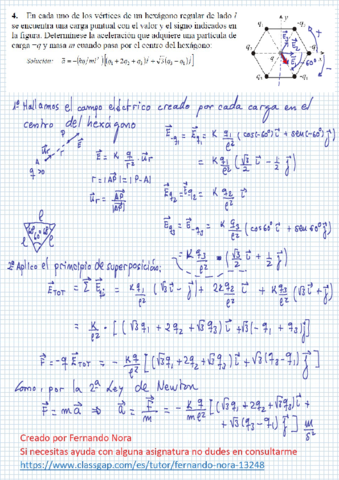 4. En cada uno de los vértices de un hexágono regular de lado l
se encuentra una carga puntual con el valor y el signo indicados en
la figura. Determínese la aceleración que adquiere una partícula de
carga −q y masa m cuando pasa por el centro del hexágono.
Solución: a⃗ = −(kq/ml²)[(q₁ + 2q₂ + q₃)i⃗ + √3(q₃ − q₁)j⃗]
1º Hallamos el campo eléctrico creado por cada carga en el
centro del hexágono
E⃗ = K q/r² u⃗r
r = |AP⃗| = |P-A|
u⃗r = AP⃗/|AP⃗|
q>0
E⃗q₁ = E⃗-q₁ = K q₁/l² (cos(-60°) i⃗ + sen(-60°) j⃗)
= K q₁/l² (√3/2 i⃗ - 1/2 j⃗)
E⃗q₂ = E⃗-q₂ = K q₂/l² i⃗
E⃗q₃ = E⃗-q₃ = K q₃/l² (cos 60° i⃗ + sen 60° j⃗)
= K q₃/l² · (√3/2 i⃗ + 1/2 j⃗)
2º Aplico el principio de superposición:
E⃗TOT = Σ E⃗q = K q₁/l² (√3 i⃗ - j⃗) + 2K q₂/l² i⃗ + K q₃/l² (√3 i⃗ + j⃗)
= K/l² · [(√3 q₁ + 2q₂ + √3 q₃) i⃗ + √3(-q₁ + q₃) j⃗]
F⃗ = -q E⃗TOT = - K q/l² [(√3 q₁ + 2q₂ + √3 q₃) i⃗ + √3(q₃-q₁) j⃗]
Como, por la 2ª Ley de Newton
F⃗ = m a⃗ ⇒ a⃗ = F⃗/m = - K q/ml² [(√3 q₁ + 2q₂ + √3 q₃) i⃗ +
+ √3 (q₃-q₁) j⃗] m/s²
Creado por Fernando Nora
Si necesitas ayuda con alguna asignatura no dudes en consultarme
https://www.classgap.com/es/tutor/fernando-nora-13248